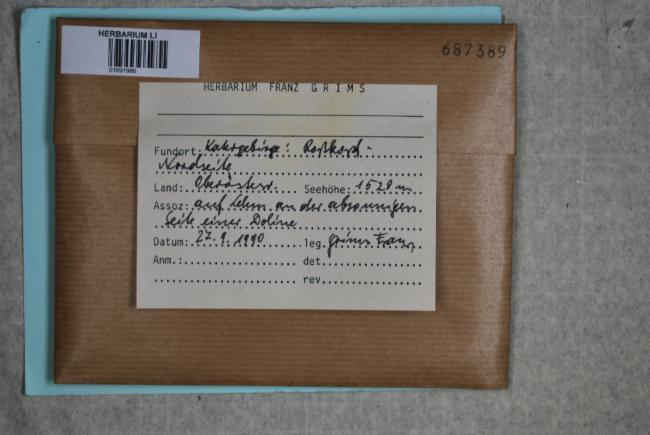 HERBARIUM LI
01691986
687389
HERBARIUM FRANZ GRIMS
Fundort: Katergebirge: Roßkopf-
Nordseite
Land: Oberösterr. Seehöhe: 1529 m
Assoz: auf Lehm an der absonnigen
Seite einer Doline
Datum: 27. 9. 1990 leg. Grims Franz
Anm.: det.
rev.